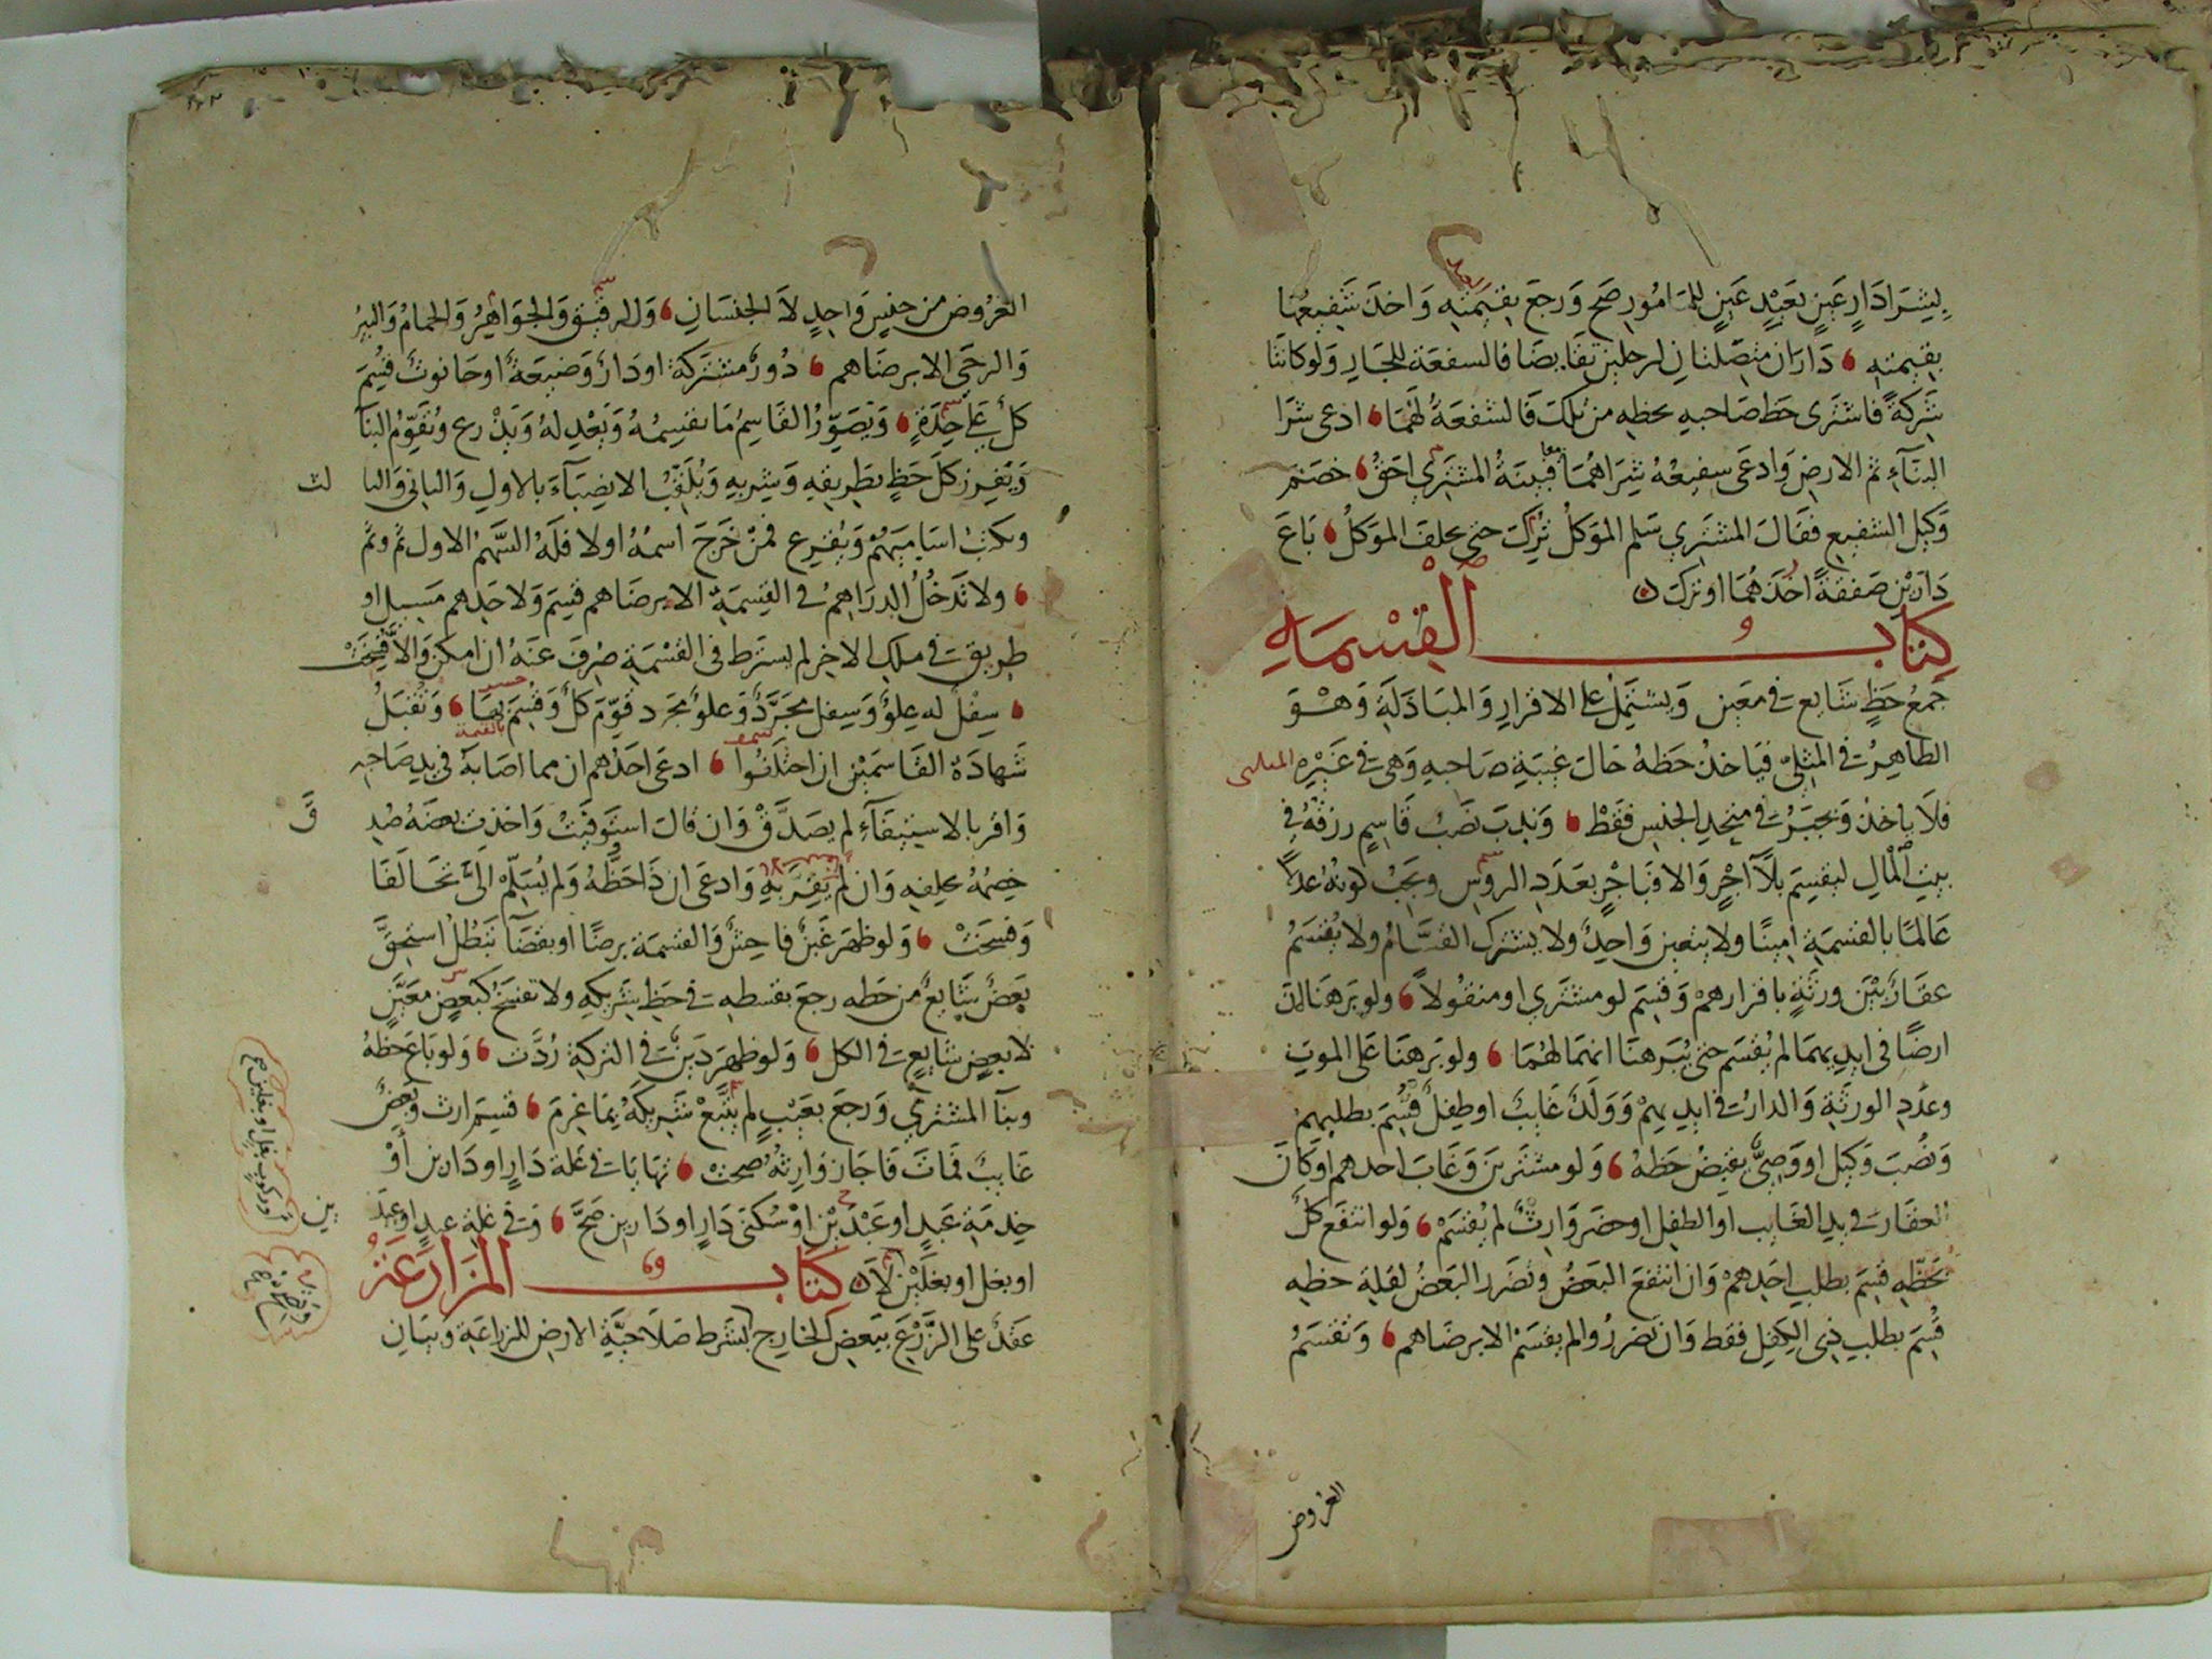 بشرا دار عين بعبد عين للمامور صح ورجع بقيمته واخذ شفيعها
بقيمته ، داران متصلتان لرجلين تقابضا فالسفعة للجار ولو كانتا
شركة فاشترى حظ صاحبه بحظه من تلك فالشفعة لهما ، ادعى شرا
البنآء ثم الارض وادعى سفيعه شراهما معا فبينة المشتري احق ، خصم
وكيل الشفيع فقال المشتري سلم الموكل ترك حتى يحلف الموكل ، باع
دارين صفقة اخذهما او ترك
كتاب القسمة
جمع حظ شايع في معين ويشتمل على الافراز والمبادلة وهو
الظاهر في المثلي فياخذ حظه حال غيبة صاحبه وهي في غيره
فلا ياخذ ويجبر في متحد الجنس فقط ، وندب نصب قاسم رزقه في
بيت المال ليقسم بلا آجر والا فباجر بعدد الروس ويجب كونه عدلا
عالما بالقسمة امينا ولا يتعين واحد ولا يشترك القسام ولا يقسم
عقار بين ورثة باقرارهم وقسم لو مشتري او منقولا ، ولو برهنا ان
ارضا في ايديهما لم يقسم حتى يبرهنا انهما لهما ، ولو برهنا على الموت
وعدد الورثة والدار في ايديهم وولد غايب او طفل قسم بطلبهم
ونصب وكيل او وصي يقبض حظه ، ولو مشترين وغاب احدهم او كان
العقار في يد الغايب او الطفل او حضر وارث لم يقسم ، ولو انتفع كل
بحظه قسم بطلب احدهم وان انتفع البعض وتضرر البعض لقلة حظه
قسم بطلب ذي الكفل فقط وان تضرروا لم يقسم الا برضاهم ، وتقسم
العروض
العروض من جنس واحد لا الجنسان ، ولا الرقيق والجواهر والحمام والبير
والرحى الا برضاهم ، دور مشتركة او دار وضيعة او حانوت قسم
كل على حدة ، ويصور القاسم ما يقسمه ويعدله ويذرع ويقوم البنآ
ويفرز كل حظ بطريقه وشربه ويلقب الانصبآء بالاول والثاني والثا لث
ويكتب اساميهم ويقرع فمن خرج اسمه اولا فله السهم الاول ثم وثم
، ولا تدخل الدراهم في القسمة الا برضاهم قسم ولاحدهم مسيل او
طريق في ملك الاخر لم يسترط في القسمة صرف عنه ان امكن والا فسخت
، سفل له علو وسفل مجرد وعلو مجرد قوم كل وقسم بها ، وتقبل
بالقيمة
شهادة القاسمين ان اختلفوا ، ادعى احدهم ان مما اصابه في يد صاحبه
واقر بالاستيفاء لم يصدق وان قال استوفيت واخذت بعضه صد ق
خصمه بحلفه وان لم يقر به وادعى ان ذا حظه ولم يسلم الي تحالفا
وفسخت ، ولو ظهر غبن فاحش والقسمة برضا او بقضآ تبطل استحق
بعض شايع من حظه رجع بقسطه في حظ شريكه ولا تفسخ كبعض معين
لا بعض شايع في الكل ، ولو ظهر دين في التركة ردت ، ولو باع حظه
وبنآ المشتري ورجع بعيب لم يتبع شريكه بما غرم ، قسم ارث وبعض
غايب فمات فاجاز وارثه صحت ، تهايا في غلة دار او دارين او
خدمة عبد او عبدين او سكنى دار او دارين صح ، وفي غلة عبد او عبد ين
او بغل او بغلين لا كتاب المزارعة
عقد على الزرع ببعض الخارج بشرط صلاحية الارض للمزارعة وبيان
او ركوب بغل او بغلين صح